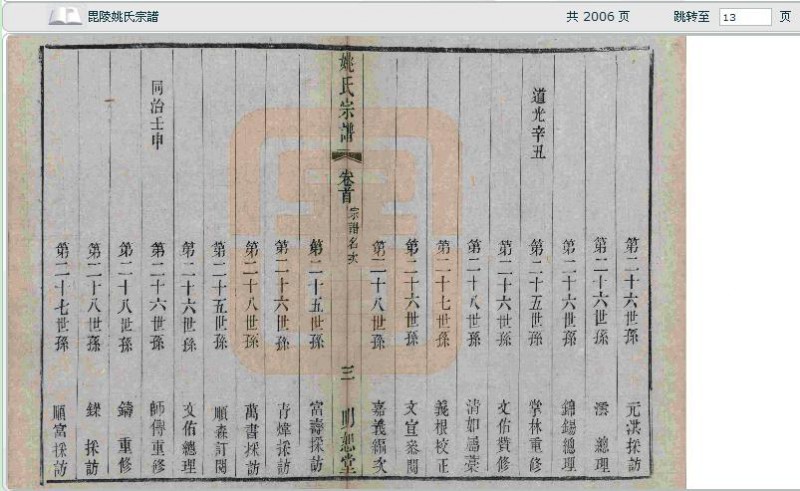 毘陵姚氏宗譜
共 2006 页
跳转至 13 页
第二十六世孫 元淇採訪
第二十六世孫 澐 總理
第二十六世孫 錦錫總理
道光辛丑 第二十五世孫 掌林重修
第二十六世孫 文佑贊修
第二十八世孫 清如謄藁
第二十七世孫 義根校正
第二十六世孫 文宣叅閱
第二十八世孫 嘉義編次
姚氏宗譜 卷首 宗譜名次 三 明恕堂
第二十五世孫 富壽採訪
第二十六世孫 青煒採訪
第二十八世孫 萬書採訪
第二十五世孫 順森訂閱
第二十六世孫 文佑總理
同治壬申 第二十六世孫 師傳重修
第二十八世孫 鑄 重修
第二十八世孫 鏷 採訪
第二十七世孫 順富採訪